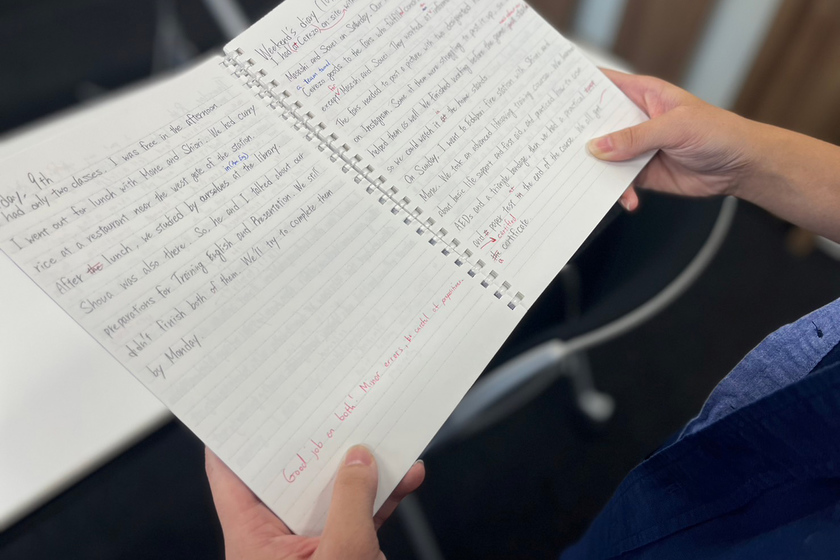 day, 9th
had only two classes. I was free in the afternoon
I went out for lunch with Mone and Shiori. We had curry
rice at a restaurant near the west gate of the station.
After the lunch, we studied by ourselves at the library.
in(to)
Shoua was also there. So, he and I talked about our
preparations for Training English and Presentation. We still
didn't finish both of them. We'll try to complete them
by Monday.
Good job on both! Minor errors, be careful of prepositions.
Weekend's diary
I had a Cerezo on-site
Masashi and Souri on Saturday. Our
a team named
Cerezo goods to the fans who
for
except Masashi and Souri. They worked at
The fans needed to post a picture with two designated
on Instagram. Some of them were struggling to post it, so
helped them as well. We finished working before the game
so we could watch it at the home stands.
On Sunday, I went to fire station with Shiori and
Mone. We took an advanced lifesaving training course. We learned
about basic life support and first aids, and practiced how to use
AEDs and a triangle bandage, then we had a practical
and a paper test in the end of the course. We all got
at
certified
the certificate.
a